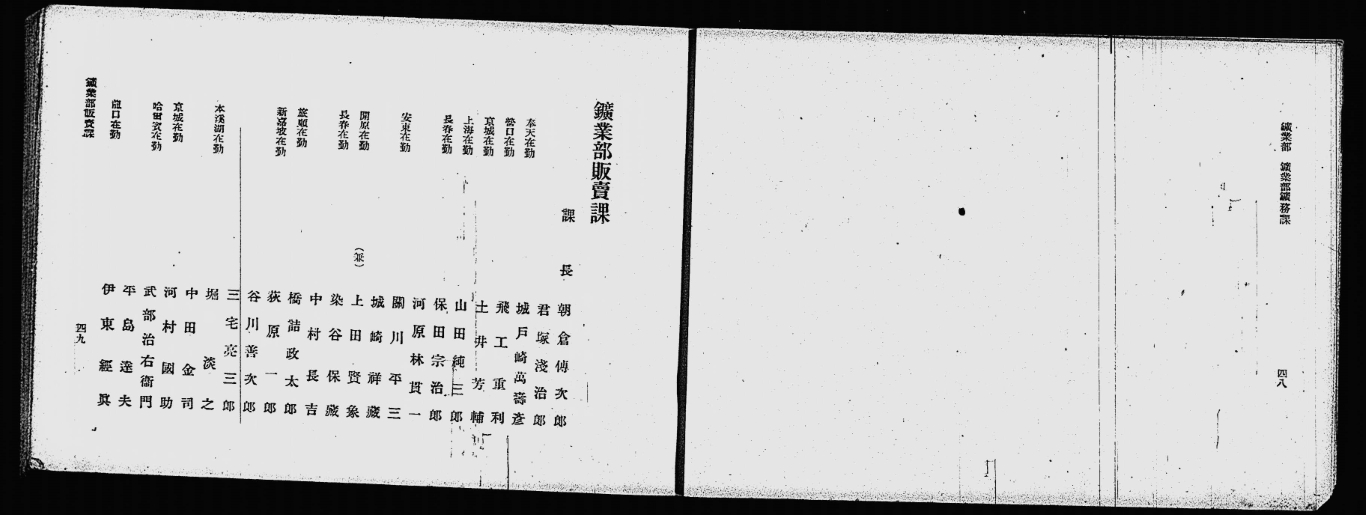 鑛業部 鑛業部鑛務課
四八
鑛業部販賣課
課長 朝倉傳次郎
君塚淺治郎
奉天在勤 城戸崎萬壽彦
營口在勤 飛工重利
京城在勤 土井芳輔
上海在勤 山田純三郎
長春在勤 保田宗治郎
河原林貫一
安東在勤 關川平三
城崎祥藏
開原在勤 (兼) 上田賢象
長春在勤 染谷保藏
中村長吉
旅順在勤 橋詰政太郎
新嘉坡在勤 荻原一郎
谷川善次郎
三宅亮三郎
本溪湖在勤 堀淡之
中田金司
京城在勤 河村國助
哈爾賓在勤 武部治右衞門
平島達夫
龍口在勤 伊東經眞
鑛業部販賣課
四九